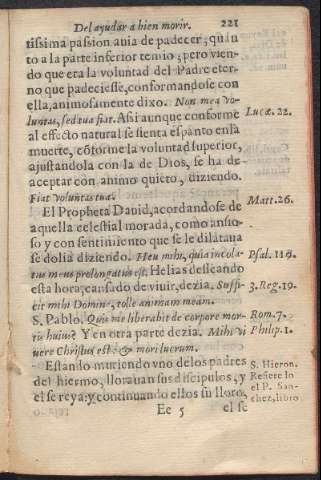 Del ayudar a bien morir. 221
tissima passion auia de padecer, quãn
to a la parte inferior temio; pero vien-
do que era la voluntad del Padre eter-
no que padeciesse, conformandose con
ella, animosamente dixo. Non mea vo-
luntas, sed tua fiat. Assi aunque conforme Lucæ. 22.
al effecto natural se sienta espanto en la
muerte, cõforme la voluntad superior,
ajustandola con la de Dios, se ha de
aceptar con animo quieto, diziendo.
Fiat voluntas tua. Matt. 26.
El Propheta Dauid, acordandose de
aquella celestial morada, como ansio-
so y con sentimiento que se le dilataua
se dolia diziendo. Heu mihi, quia incola- Psal. 119.
tus meus prolongatus est. Helias desseando
esta hora, cansado de viuir, dezia. Suffi- 3. Reg. 19.
cit mihi Domine, tolle animam meam.
S. Pablo. Quis me liberabit de corpore mor- Rom. 7.
tis huius? Y en otra parte dezia. Mihi vi Philip. 1.
uere Christus est & mori lucrum.
Estando muriendo vno de los padres S. Hieron.
del hiermo, llorauan sus discipulos, y Refiere lo
el se reya: y continuando ellos su lloro, el P. San-
chez, libro
Ee 5 el se